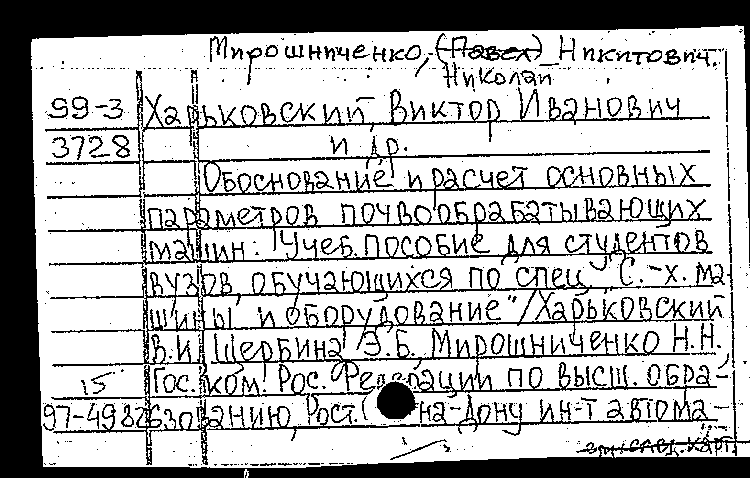 Мирошниченко, (Павел) Никитович.
Николай
99-3 Харьковский, Виктор Иванович
3728 и др.
Обоснование и расчет основных
параметров почвообрабатывающих
машин: Учеб. пособие для студентов
вузов, обучающихся по спец. "С.-х. ма-
шины и оборудование" / Харьковский
В.И., Щербина Э.Б., Мирошниченко Н.Н.
15 Гос. ком. Рос. Федерации по высш. обра-
97-4987 зованию, Рост. на-Дону ин-т автома-
карт.